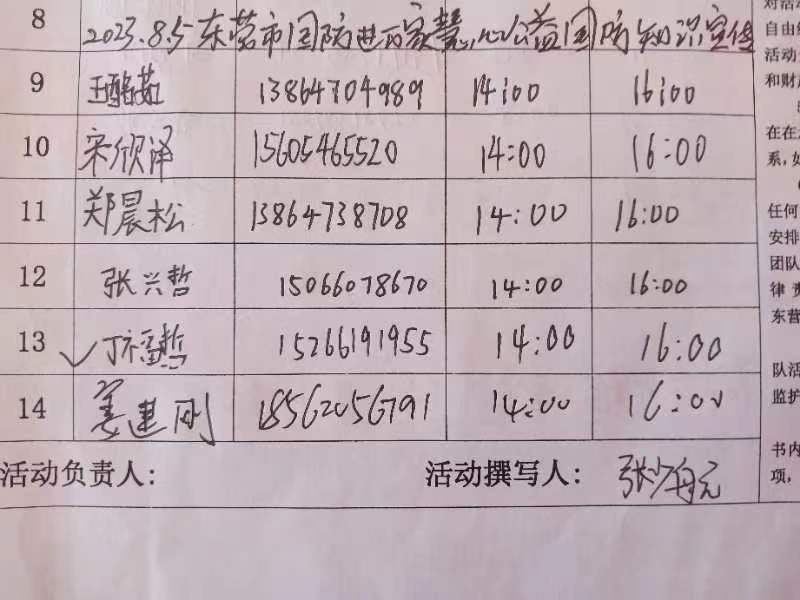 8 2023.8.5东营市国防进万家慧心公益国防知识宣传
9 王醅茹 13864704989 14:00 16:00
10 宋欣泽 15605465520 14:00 16:00
11 郑晨松 13864738708 14:00 16:00
12 张兴哲 15066078670 14:00 16:00
13 丁福哲 15266191955 14:00 16:00
14 姜建刚 18562056791 14:00 16:00
活动负责人: 活动撰写人: 张
对活动
自由组
活动
和财产
在在
系,如
任何
安排
团队
律责
东营
队活
监护
书内
项,